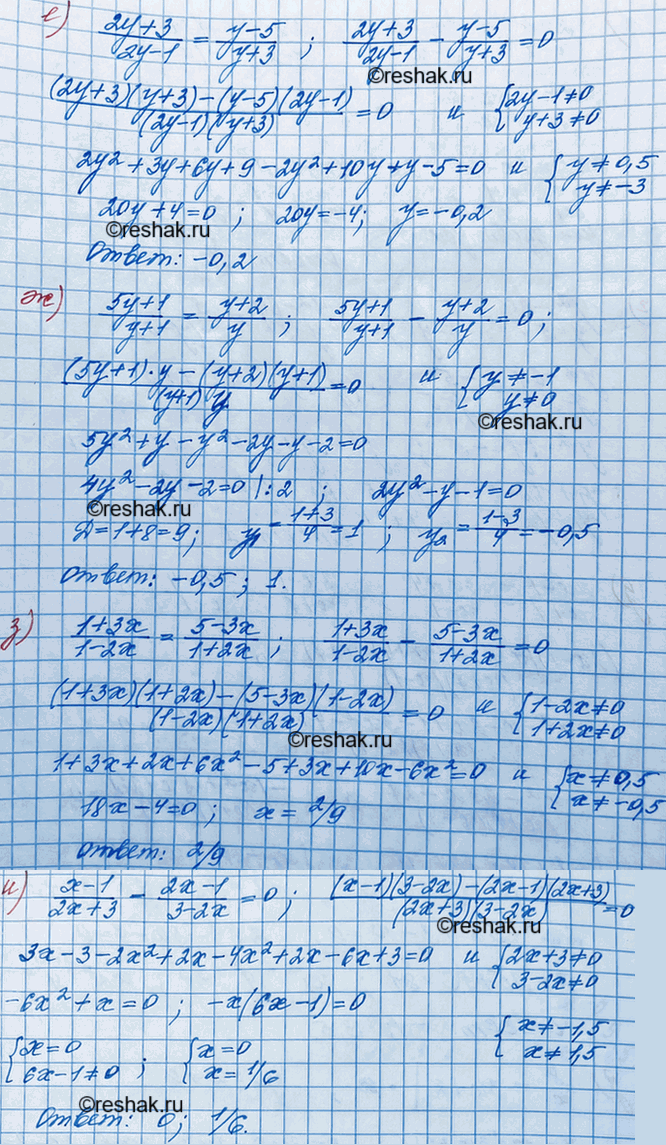 е) (2y+3)/(2y-1) = (y-5)/(y+3) ; (2y+3)/(2y-1) - (y-5)/(y+3) = 0
©reshak.ru
((2y+3)(y+3)-(y-5)(2y-1))/((2y-1)(y+3)) = 0 и {2y-1≠0
y+3≠0
2y²+3y+6y+9-2y²+10y+y-5=0 и {y≠0,5
y≠-3
20y+4=0 ; 20y=-4; y=-0,2
©reshak.ru
Ответ: -0,2
ж) (5y+1)/(y+1) = (y+2)/y ; (5y+1)/(y+1) - (y+2)/y = 0 ;
((5y+1)·y-(y+2)(y+1))/((y+1)y) = 0 и {y≠-1
y≠0
©reshak.ru
5y²+y-y²-2y-y-2=0
4y²-2y-2=0 |:2 ; 2y²-y-1=0
©reshak.ru
Д=1+8=9; y₁=(1+3)/4=1 ; y₂=(1-3)/4=-0,5
Ответ: -0,5 ; 1.
з) (1+3x)/(1-2x) = (5-3x)/(1+2x) ; (1+3x)/(1-2x) - (5-3x)/(1+2x) = 0
((1+3x)(1+2x)-(5-3x)(1-2x))/((1-2x)(1+2x)) = 0 и {1-2x≠0
1+2x≠0
©reshak.ru
1+3x+2x+6x²-5+3x+10x-6x²=0 и {x≠0,5
x≠-0,5
18x-4=0 ; x=2/9
Ответ: 2/9
и) (x-1)/(2x+3) - (2x-1)/(3-2x) = 0 ; ((x-1)(3-2x)-(2x-1)(2x+3))/((2x+3)(3-2x)) = 0
©reshak.ru
3x-3-2x²+2x-4x²+2x-6x+3=0 и {2x+3≠0
3-2x≠0
-6x²+x=0 ; -x(6x-1)=0
{x≠-1,5
x≠1,5
{x=0
6x-1≠0 ; {x=0
x=1/6
©reshak.ru
Ответ: 0; 1/6.